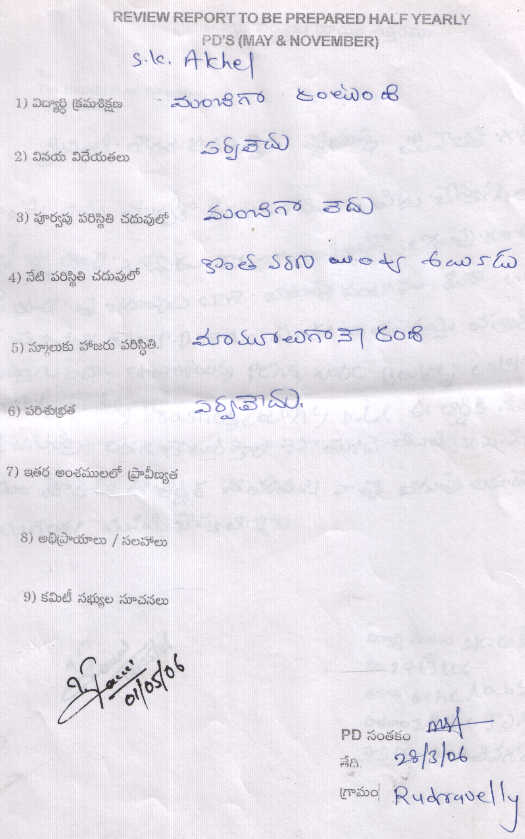 REVIEW REPORT TO BE PREPARED HALF YEARLY
PD'S (MAY & NOVEMBER)
S.K. Akhel
1) విద్యార్థి క్రమశిక్షణ మంచిగా ఉంటుంది
2) వినయ విధేయతలు పర్వలేదు
3) పూర్వపు పరిస్థితి చదువులో మంచిగా లేదు
4) నేటి పరిస్థితి చదువులో కొంత వరకు
5) స్కూలుకు హాజరు పరిస్థితి. మామూలుగానే ఉంది
6) పరిశుభ్రత పర్వలేదు.
7) ఇతర అంశములలో ప్రావీణ్యత
8) అభిప్రాయాలు / సలహాలు
9) కమిటీ సభ్యుల సూచనలు
01/05/06
PD సంతకం
తేది. 28/3/06
గ్రామం Rudravelly